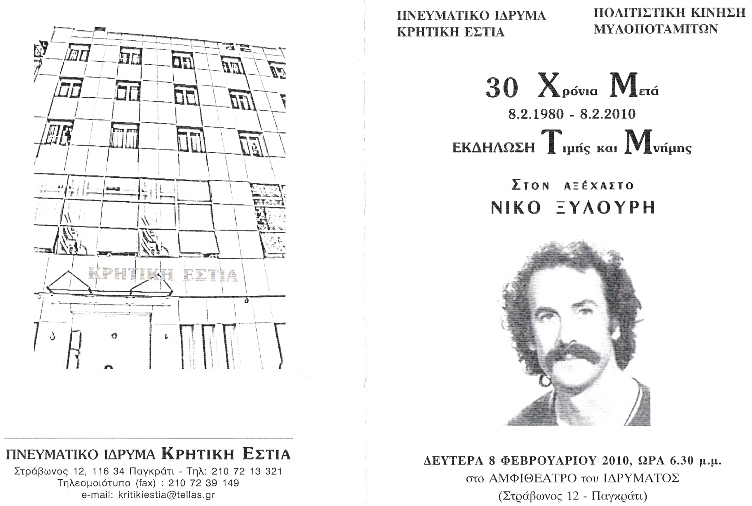 ΚΡΗΤΙΚΗ ΕΣΤΙΑ
ΠΝΕΥΜΑΤΙΚΟ ΙΔΡΥΜΑ ΚΡΗΤΙΚΗ ΕΣΤΙΑ
Στράβωνος 12, 116 34 Παγκράτι - Τηλ: 210 72 13 321
Τηλεομοιότυπο (fax) : 210 72 39 149
e-mail: kritikiestia@tellas.gr
ΠΝΕΥΜΑΤΙΚΟ ΙΔΡΥΜΑ
ΚΡΗΤΙΚΗ ΕΣΤΙΑ
ΠΟΛΙΤΙΣΤΙΚΗ ΚΙΝΗΣΗ
ΜΥΛΟΠΟΤΑΜΙΤΩΝ
30 Χρόνια Μετά
8.2.1980 - 8.2.2010
ΕΚΔΗΛΩΣΗ Τιμής και Μνήμης
ΣΤΟΝ ΑΞΕΧΑΣΤΟ
ΝΙΚΟ ΞΥΛΟΥΡΗ
ΔΕΥΤΕΡΑ 8 ΦΕΒΡΟΥΑΡΙΟΥ 2010, ΩΡΑ 6.30 μ.μ.
στο ΑΜΦΙΘΕΑΤΡΟ του ΙΔΡΥΜΑΤΟΣ
(Στράβωνος 12 - Παγκράτι)